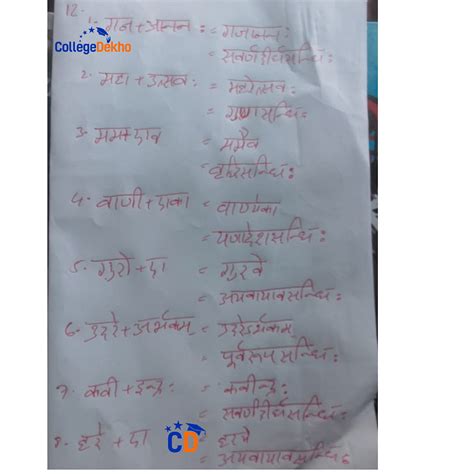 12.
1. गज + आननः = गजाननः
CollegeDekho
= सवर्णदीर्घसन्धिः
2. महा + उत्सवः = महोत्सवः
= गुणसन्धिः
3. मम + एव = ममैव
= वृद्धिसन्धिः
4. वाणी + एका = वाण्येका
= यणादेशसन्धिः
5. गुरो + ए = गुरवे
= अयवायावसन्धिः
6. उदरे + अर्भकम् = उदरेऽर्भकम्
= पूर्वरूपसन्धिः
7. कवी + इन्द्रः = कवीन्द्रः
= सवर्णदीर्घसन्धिः
CD
8. हरे + ए = हरये
= अयवायावसन्धिः